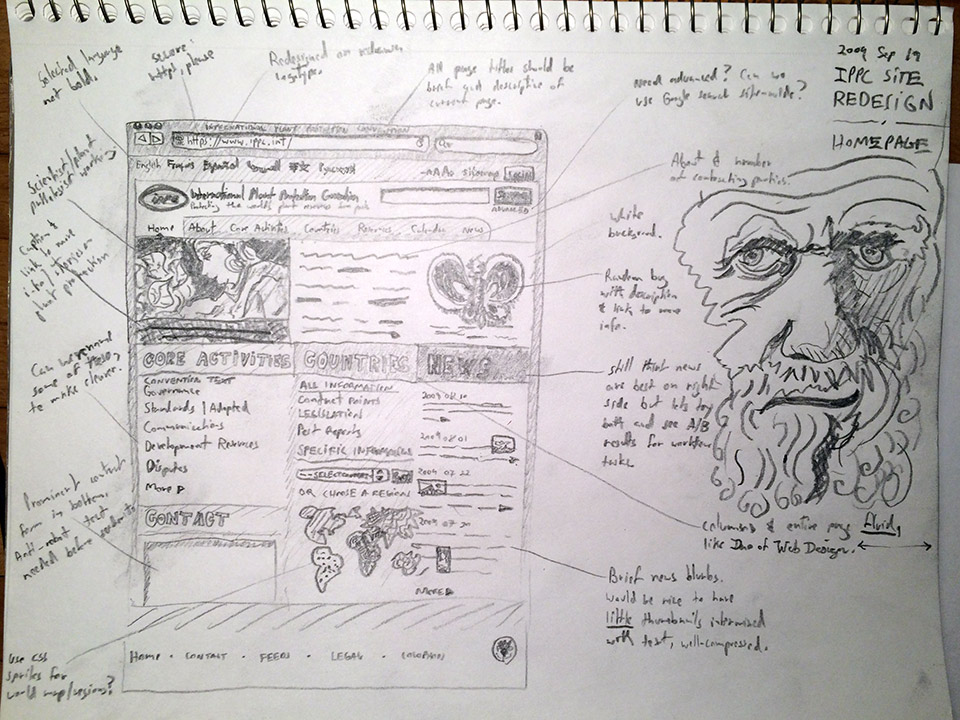 2009 Sep 19
IPPC SITE
REDESIGN
HOMEPAGE
Selected language
not bold.
secure:
https, please
Redesigned or redrawn
logotype.
All page titles should be
brief and descriptive of
current page.
Need advanced? Can we
use Google search site-wide?
About & number
of contracting parties.
white
background.
Random bug
with description
& link to more
info.
still think news
are best on right
side but lets try
both and see A/B
results for workflow
tasks.
columns & entire page fluid,
like Dao of Web Design.
Brief news blurbs.
would be nice to have
little thumbnails intermixed
with text, well-compressed.
Scientist/plant
Caption &
link to more
info
plant protection
Can we remove
some of these,
to make cleaner.
Prominent contact
form in bottom.
Anti-robot test
needed before
use CSS
sprites for
world map/regions?
INTERNATIONAL PLANT PROTECTION CONVENTION
https://www.ippc.int/
English Français Español
AAA sitemap LOGIN
IPPC
International Plant Protection Convention
Protecting the world's plant resources from pests
ADVANCED
Home About Core Activities Countries Resources Calendar News
CORE ACTIVITIES
CONVENTION TEXT
Governance
Standards | Adopted
Communications
Development Resources
Disputes
More
CONTACT
COUNTRIES
ALL INFORMATION
Contact Points
LEGISLATION
Pest Reports
SPECIFIC INFORMATION
OR CHOOSE A REGION
NEWS
2009 08 01
2009 07 22
2009 07 20
MORE
HOME · CONTACT · FEEDS · LEGAL · COLOPHON